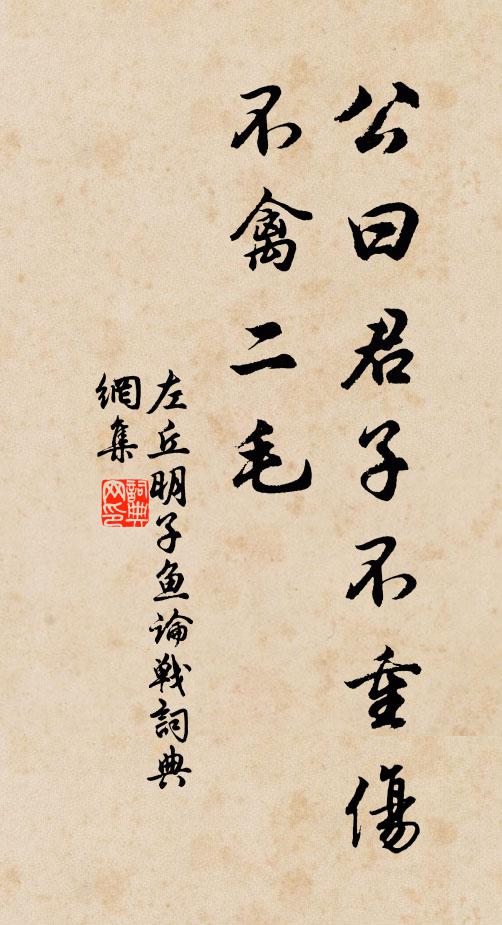 公曰君子不重傷
不禽二毛
左丘明子魚論戰詞典
網集
詞典
网印